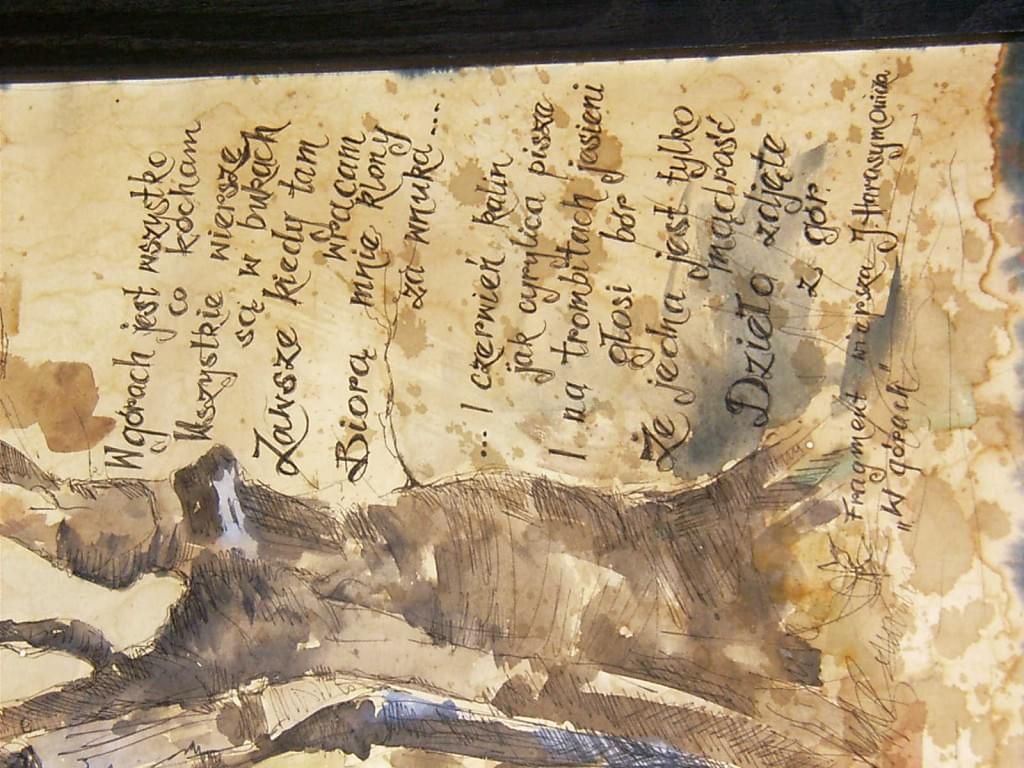 W górach jest wszystko
co kocham
Wszystkie wiersze
są w bukach
Zawsze kiedy tam
wracam
Biorą mnie klony
za wnuka...
... I czerwień kalin
jak cyrylica pisze
I na trombitach jesieni
głosi bór
Że jedna jest tylko
mądrość
Dzieło zdjęte
z gór
Fragment wiersza J. Harasymowicza
„W górach"